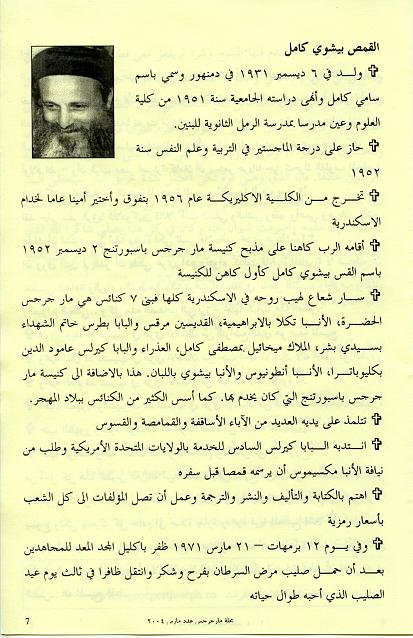 القمص بيشوي كامل
✞ ولد في ٦ ديسمبر ١٩٣١ في دمنهور وسمي باسم
سامي كامل وأنهى دراسته الجامعية سنة ١٩٥١ من كلية
العلوم وعين مدرسا بمدرسة الرمل الثانوية للبنين.
✞ حاز على درجة الماجستير في التربية وعلم النفس سنة
١٩٥٢
✞ تخرج من الكلية الاكليريكة عام ١٩٥٦ بتفوق وأختير أمينا عاما لخدام
الاسكندرية
✞ أقامه الرب كاهنا على مذبح كنيسة مار جرجس باسبورتنج ٢ ديسمبر ١٩٥٢
باسم القس بيشوي كامل كأول كاهن للكنيسة
✞ سار شعاع لهيب روحه في الاسكندرية كلها فبنى ٧ كنائس هي مار جرجس
الحضرة، الأنبا تكلا بالابراهيمية، القديسين مرقس والبابا بطرس خاتم الشهداء
بسيدي بشر، الملاك ميخائيل بمصطفى كامل، العذراء والبابا كيرلس عامود الدين
بكليوباترا، الأنبا أنطونيوس والأنبا بيشوي باللبان. هذا بالاضافة الى كنيسة مار
جرجس باسبورتنج التي كان يخدم بها. كما أسس الكثير من الكنائس ببلاد المهجر.
✞ تتلمذ على يديه العديد من الآباء الأساقفة والقمامصة والقسوس
✞ انتدبه البابا كيرلس السادس للخدمة بالولايات المتحدة الأمريكية وطلب من
نيافة الأنبا مكسيموس أن يرسمه قمصا قبل سفره
✞ اهتم بالكتابة والتأليف والنشر والترجمة وعمل أن تصل المؤلفات الى كل الشعب
بأسعار رمزية
✞ وفي يوم ١٢ برمهات – ٢١ مارس ١٩٧١ ظفر باكليل المجد المعد للمجاهدين
بعد أن حمل صليب مرض السرطان بفرح وشكر وانتقل ظافرا في ثالث يوم عيد
الصليب الذي أحبه طوال حياته
مجلة مارجرجس, عدد مارس, ٢٠٠٤
7